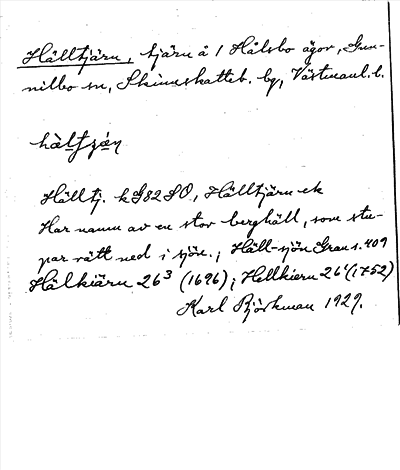 Hälltjärn, tjärn å 1 Hälsbo ägor, Gun-
nilbo sn, Skinnskatteb. bg, Västmanl. l.
hàltʃæ̀ṇ
Hälltj. k G82 SO, Hälltjärn ek
Har namn av en stor berghäll, som stu-
par rätt ned i sjön.; Häll-sjön Grau s. 409
Hälkiärn 26³ (1696); Hellkiern 26⁴ (1752)
Karl Björkman 1929.